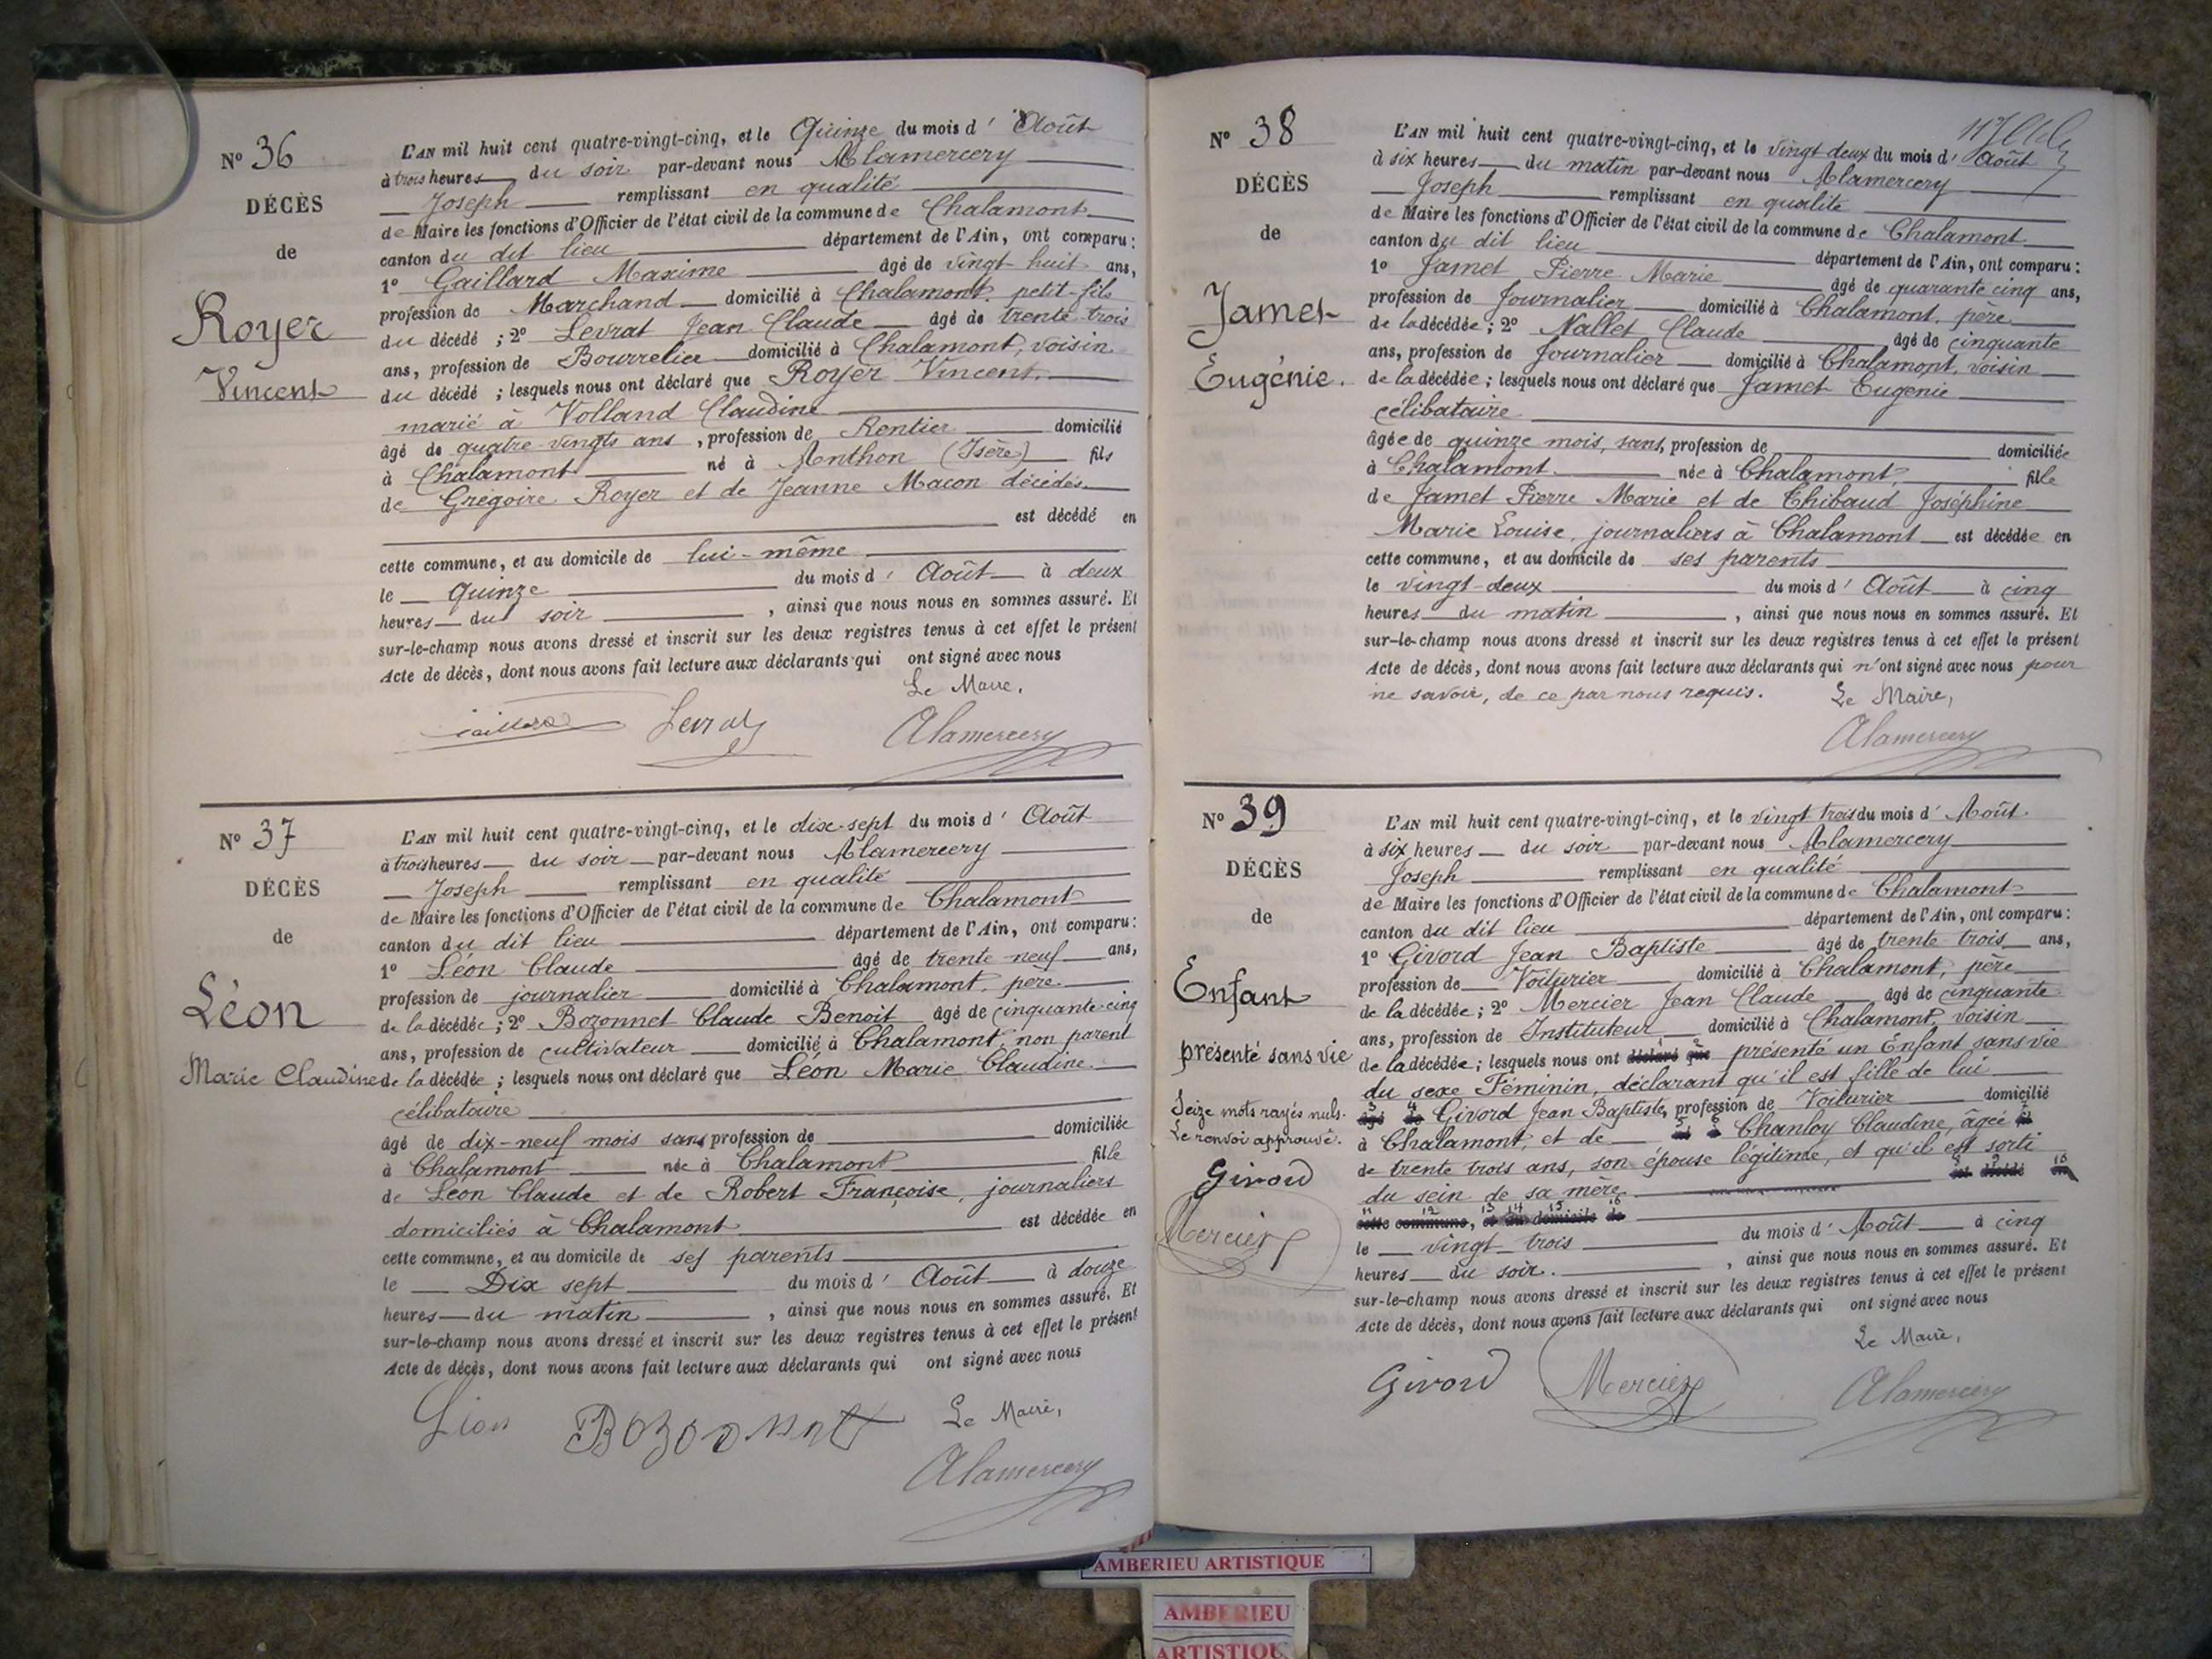 N° 36
DÉCÈS
de
Royer
Vincent
L'AN mil huit cent quatre-vingt-cinq, et le Quinze du mois d' Août
à trois heures du soir par-devant nous Alamercery
Joseph remplissant en qualité
de Maire les fonctions d'Officier de l'état civil de la commune de Chalamont
canton du dit lieu département de l'Ain, ont comparu :
1° Gaillard Maxime âgé de vingt huit ans,
profession de Marchand domicilié à Chalamont, petit-fils
du décédé ; 2° Levrat Jean Claude âgé de trente trois
ans, profession de Bourrelier domicilié à Chalamont, voisin
du décédé ; lesquels nous ont déclaré que Royer Vincent.
marié à Volland Claudine
âgé de quatre vingts ans, profession de Rentier domicilié
à Chalamont né à Anthon (Isère) fils
de Grégoire Royer et de Jeanne Macon décédés.
est décédé en
cette commune, et au domicile de lui-même
le Quinze du mois d' Août à deux
heures du soir, ainsi que nous nous en sommes assuré. Et
sur-le-champ nous avons dressé et inscrit sur les deux registres tenus à cet effet le présent
Acte de décès, dont nous avons fait lecture aux déclarants qui ont signé avec nous
Le Maire,
Gaillard Levrat Alamercery
N° 37
DÉCÈS
de
Léon
Marie Claudine
L'AN mil huit cent quatre-vingt-cinq, et le dix-sept du mois d' Août
à trois heures du soir par-devant nous Alamercery
Joseph remplissant en qualité
de Maire les fonctions d'Officier de l'état civil de la commune de Chalamont
canton du dit lieu département de l'Ain, ont comparu :
1° Léon Claude âgé de trente-neuf ans,
profession de journalier domicilié à Chalamont, père
de la décédée ; 2° Bozonnet Claude Benoit âgé de cinquante-cinq
ans, profession de cultivateur domicilié à Chalamont, non parent
de la décédée ; lesquels nous ont déclaré que Léon Marie Claudine.
célibataire
âgé de dix-neuf mois sans profession de domiciliée
à Chalamont née à Chalamont fille
de Léon Claude et de Robert Françoise, journaliers
domiciliés à Chalamont est décédée en
cette commune, et au domicile de ses parents
le Dix sept du mois d' Août à douze
heures du matin, ainsi que nous nous en sommes assuré. Et
sur-le-champ nous avons dressé et inscrit sur les deux registres tenus à cet effet le présent
Acte de décès, dont nous avons fait lecture aux déclarants qui ont signé avec nous
Léon Bozonnet Le Maire,
Alamercery
N° 38
DÉCÈS
de
Jamet
Eugénie.
L'AN mil huit cent quatre-vingt-cinq, et le vingt deux du mois d' Août
à six heures du matin par-devant nous Alamercery
Joseph remplissant en qualité
de Maire les fonctions d'Officier de l'état civil de la commune de Chalamont
canton du dit lieu département de l'Ain, ont comparu :
1° Jamet Pierre Marie âgé de quarante cinq ans,
profession de Journalier domicilié à Chalamont, père
de la décédée ; 2° Nallet Claude âgé de cinquante
ans, profession de Journalier domicilié à Chalamont, voisin
de la décédée ; lesquels nous ont déclaré que Jamet Eugenie
célibataire
âgée de quinze mois, sans, profession de domiciliée
à Chalamont. née à Chalamont, fille
de Jamet Pierre Marie et de Thibaud Joséphine
Marie Louise, journaliers à Chalamont est décédée en
cette commune, et au domicile de ses parents
le vingt-deux du mois d' Août à cinq
heures du matin, ainsi que nous nous en sommes assuré. Et
sur-le-champ nous avons dressé et inscrit sur les deux registres tenus à cet effet le présent
Acte de décès, dont nous avons fait lecture aux déclarants qui n'ont signé avec nous pour
ne savoir, de ce par nous requis. Le Maire,
Alamercery
N° 39
DÉCÈS
de
Enfant
présenté sans vie
Seize mots rayés nuls.
Le renvoi approuvé.
Givord
Mercier
L'AN mil huit cent quatre-vingt-cinq, et le vingt trois du mois d' Août.
à six heures du soir par-devant nous Alamercery
Joseph remplissant en qualité
de Maire les fonctions d'Officier de l'état civil de la commune de Chalamont
canton du dit lieu département de l'Ain, ont comparu :
1° Givord Jean Baptiste âgé de trente trois ans,
profession de Voiturier domicilié à Chalamont, père
de la décédée ; 2° Mercier Jean Claude âgé de cinquante
ans, profession de Instituteur domicilié à Chalamont, voisin
de la décédée ; lesquels nous ont déclaré que présenté un Enfant sans vie
du sexe Féminin, déclarant qu'il est fille de lui
âgé de Givord Jean Baptiste, profession de Voiturier domicilié
à Chalamont, et de né à Chanloy Claudine, âgée
de trente trois ans, son épouse légitime, et qu'il est sorti
du sein de sa mère est décédé en
cette commune, et au domicile de
le vingt-trois du mois d' Août à cinq
heures du soir., ainsi que nous nous en sommes assuré. Et
sur-le-champ nous avons dressé et inscrit sur les deux registres tenus à cet effet le présent
Acte de décès, dont nous avons fait lecture aux déclarants qui ont signé avec nous
Le Maire,
Givord Mercier Alamercery
AMBERIEU ARTISTIQUE
AMBERIEU
ARTISTIQUE